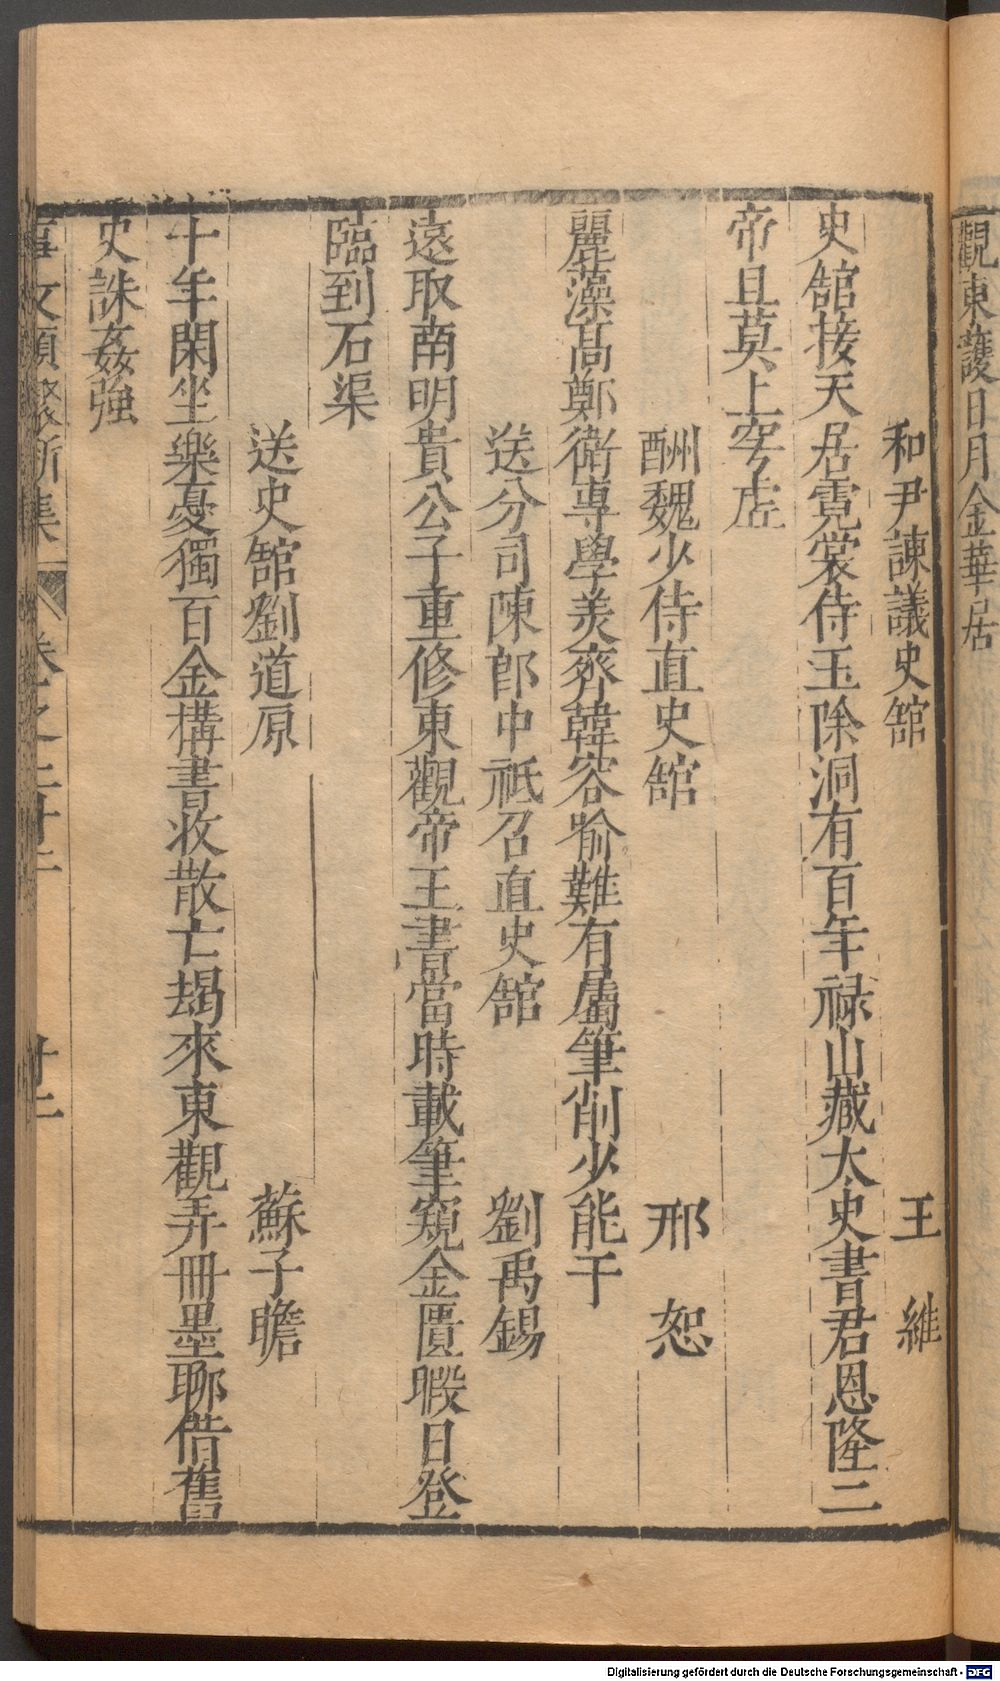 觀東護日月金華居
和尹諫議史館　王　維
史館接天居霓裳侍玉除洞有百年禄山藏太史書君恩隆二
帝且莫上空虛
酬魏少侍直史館　邢　恕
麗藻高鄭衛專學美齊韓容喻難有屬筆削少能干
送分司陳郎中祗召直史館　劉禹錫
遠取南明貴公子重修東觀帝王書當時載筆窺金匱暇日登
臨到石渠
送史館劉道原　蘇子瞻
十年閑坐樂憂獨百金構書收散亡朅來東觀弄冊墨聊借舊
史誅姦強
事文類聚新集　卷之二十二　廿二
Digitalisierung gefördert durch die Deutsche Forschungsgemeinschaft - DFG